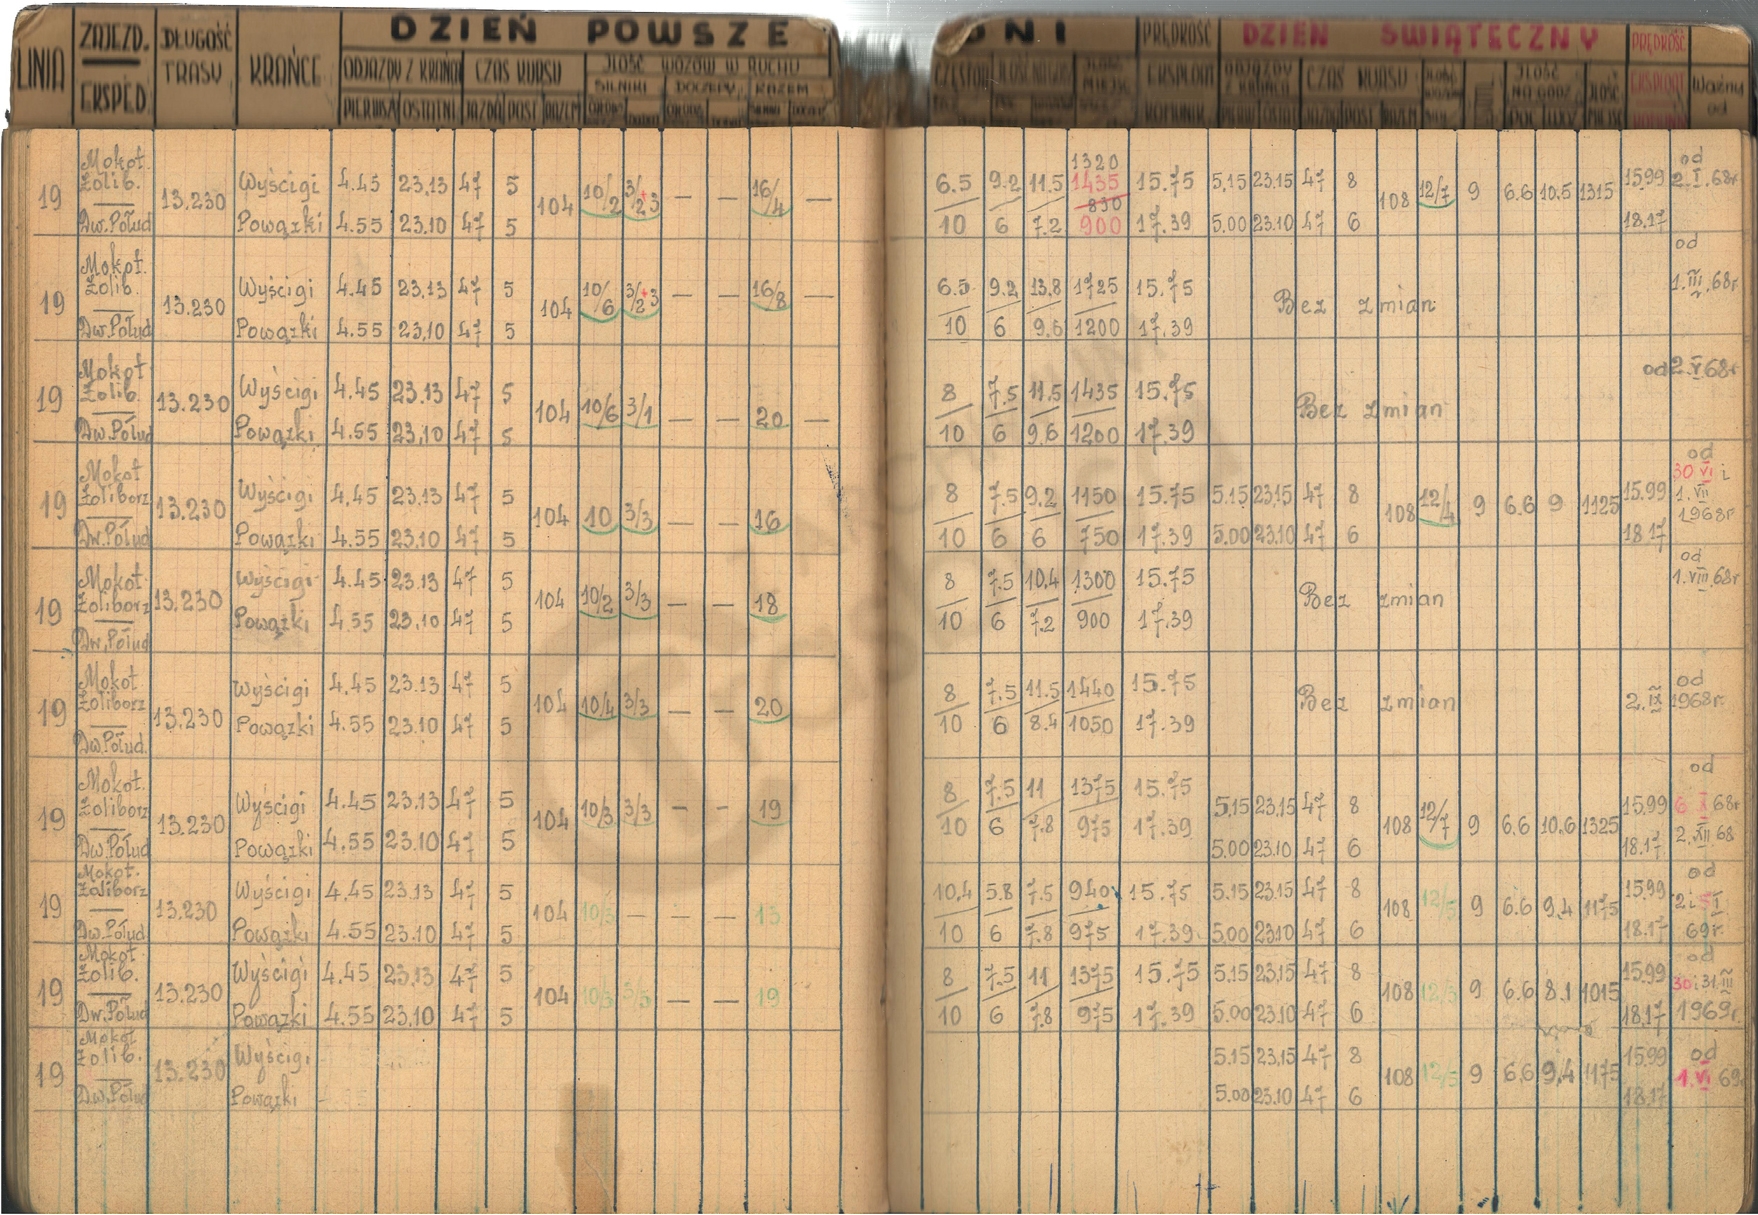 LINIA ZAJEZD. EKSPED. DŁUGOŚĆ TRASY KRAŃCE DZIEŃ POWSZEDNI PRĘDKOŚĆ EKSPLOAT. DZIEŃ ŚWIĄTECZNY PRĘDKOŚĆ EKSPLOAT Ważny od
ODJAZDY Z KRAŃC CZAS KURSU ILOŚĆ WOZÓW W RUCHU
SILNIKI DOCZEPY RAZEM
PIERWSZ OSTATNI JAZDA POST RAZEM
19 Mokot. Żolib. Dw.Połud 13.230 Wyścigi 4.45 23.13 47 5 104 10/2 3/2+3 — — 16/4 — 6.5 9.2 11.5 1320 1435 15.75 5.15 23.15 47 8 108 12/7 9 6.6 10.5 1315 15.99 od 2.I.68r
Powązki 4.55 23.10 47 5 10 6 7.2 830 900 17.39 5.00 23.10 47 6 18.17
19 Mokot. Żolib. Dw.Połud 13.230 Wyścigi 4.45 23.13 47 5 104 10/6 3/2+3 — — 16/8 — 6.5 9.2 13.8 1725 15.75 Bez zmian od 1.III.68r
Powązki 4.55 23.10 47 5 10 6 9.6 1200 17.39
19 Mokot Żolib. Dw.Połud 13.230 Wyścigi 4.45 23.13 47 5 104 10/6 3/1 — — 20 — 8 7.5 11.5 1435 15.75 Bez zmian od 2.V.68r
Powązki 4.55 23.10 47 5 10 6 9.6 1200 17.39
19 Mokot Żoliborz Dw.Połud 13.230 Wyścigi 4.45 23.13 47 5 104 10 3/3 — — 16 — 8 7.5 9.2 1150 15.75 5.15 23.15 47 8 108 12/4 9 6.6 9 1125 15.99 od 30 VI i 1.VII 1968r
Powązki 4.55 23.10 47 5 10 6 6 750 17.39 5.00 23.10 47 6 18.17
19 Mokot. Żoliborz Dw.Połud 13.230 Wyścigi 4.45 23.13 47 5 104 10/2 3/3 — — 18 — 8 7.5 10.4 1300 15.75 Bez zmian od 1.VIII.68r
Powązki 4.55 23.10 47 5 10 6 7.2 900 17.39
19 Mokot Żoliborz Dw.Połud. 13.230 Wyścigi 4.45 23.13 47 5 104 10/4 3/3 — — 20 — 8 7.5 11.5 1440 15.75 Bez zmian od 2.IX 1968r.
Powązki 4.55 23.10 47 5 10 6 8.4 1050 17.39
19 Mokot. Żoliborz Dw.Połud 13.230 Wyścigi 4.45 23.13 47 5 104 10/3 3/3 — — 19 — 8 7.5 11 1375 15.75 5.15 23.15 47 8 108 12/7 9 6.6 10.6 1325 15.99 od 68r
Powązki 4.55 23.10 47 5 10 6 7.8 975 17.39 5.00 23.10 47 6 18.17. 2.XII 68
19 Mokot. Żoliborz Dw.Połud 13.230 Wyścigi 4.45 23.13 47 5 104 10/3 — — — 13 — 10.4 5.8 7.5 940 15.75 5.15 23.15 47 8 108 12/5 9 6.6 9.4 1175 15.99 od 2 i 5 I 69r.
Powązki 4.55 23.10 47 5 10 6 7.8 975 17.39 5.00 23.10 47 6 18.17
19 Mokot. Żolib. Dw.Połud 13.230 Wyścigi 4.45 23.13 47 5 104 10/3 — — 19 — 8 7.5 11 1375 15.75 5.15 23.15 47 8 108 9 6.6 8.1 1015 15.99 od 30 i 31 III 1969r.
Powązki 4.55 23.10 47 5 10 6 7.8 975 17.39 5.00 23.10 47 6 18.17
19 Mokot Żolib. Dw.Połud 13.230 Wyścigi 5.15 23.15 47 8 108 12/5 9 6.6 9.4 1175 15.99 od 1.VI 69.
Powązki 5.00 23.10 47 6 18.17